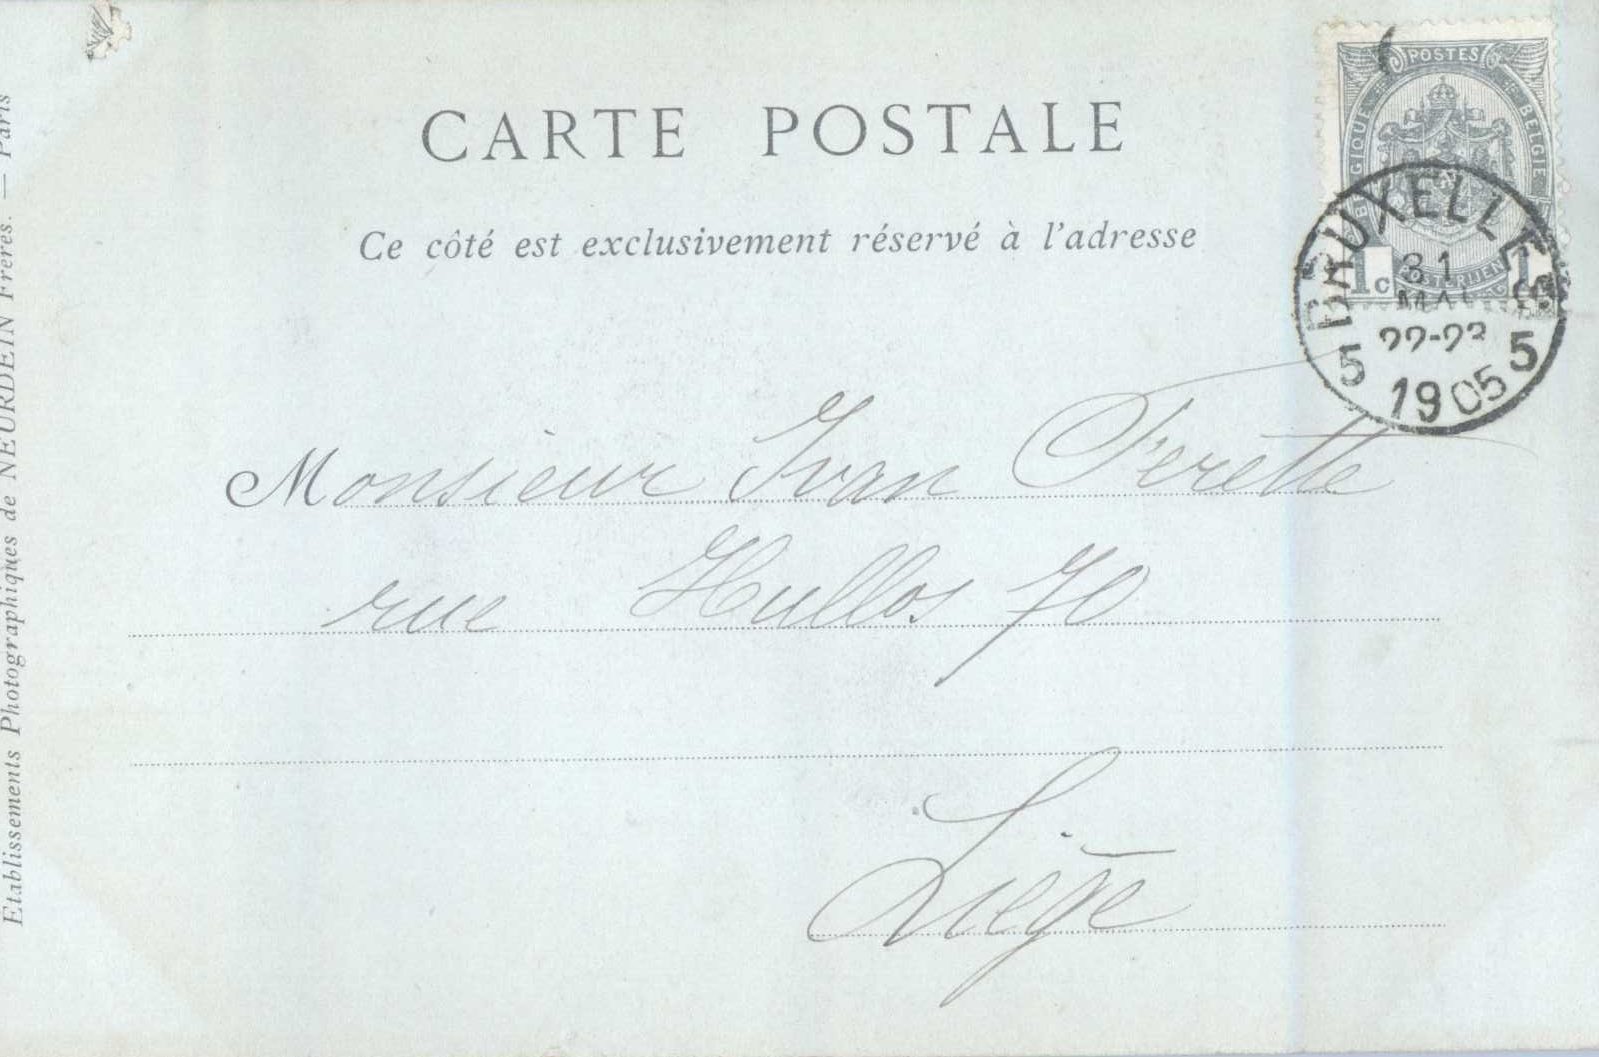 CARTE POSTALE
Ce côté est exclusivement réservé à l'adresse
Monsieur Ivan Ferette
rue Hullos 70
Liège
Etablissements Photographiques de NEURDEIN Frères. — Paris
POSTES
BELGIE
1 c
1
BRUXELLES
31
MAI
22-23
5 1905 5